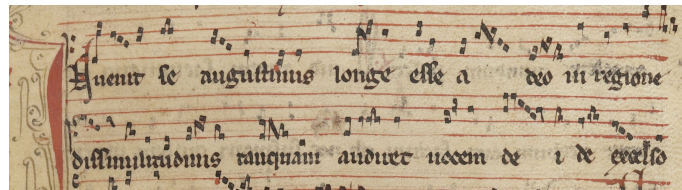 INuenit se augustinus longe esse a deo in regione
dissimilitudinis tanquam audiret uocem de i de excelso